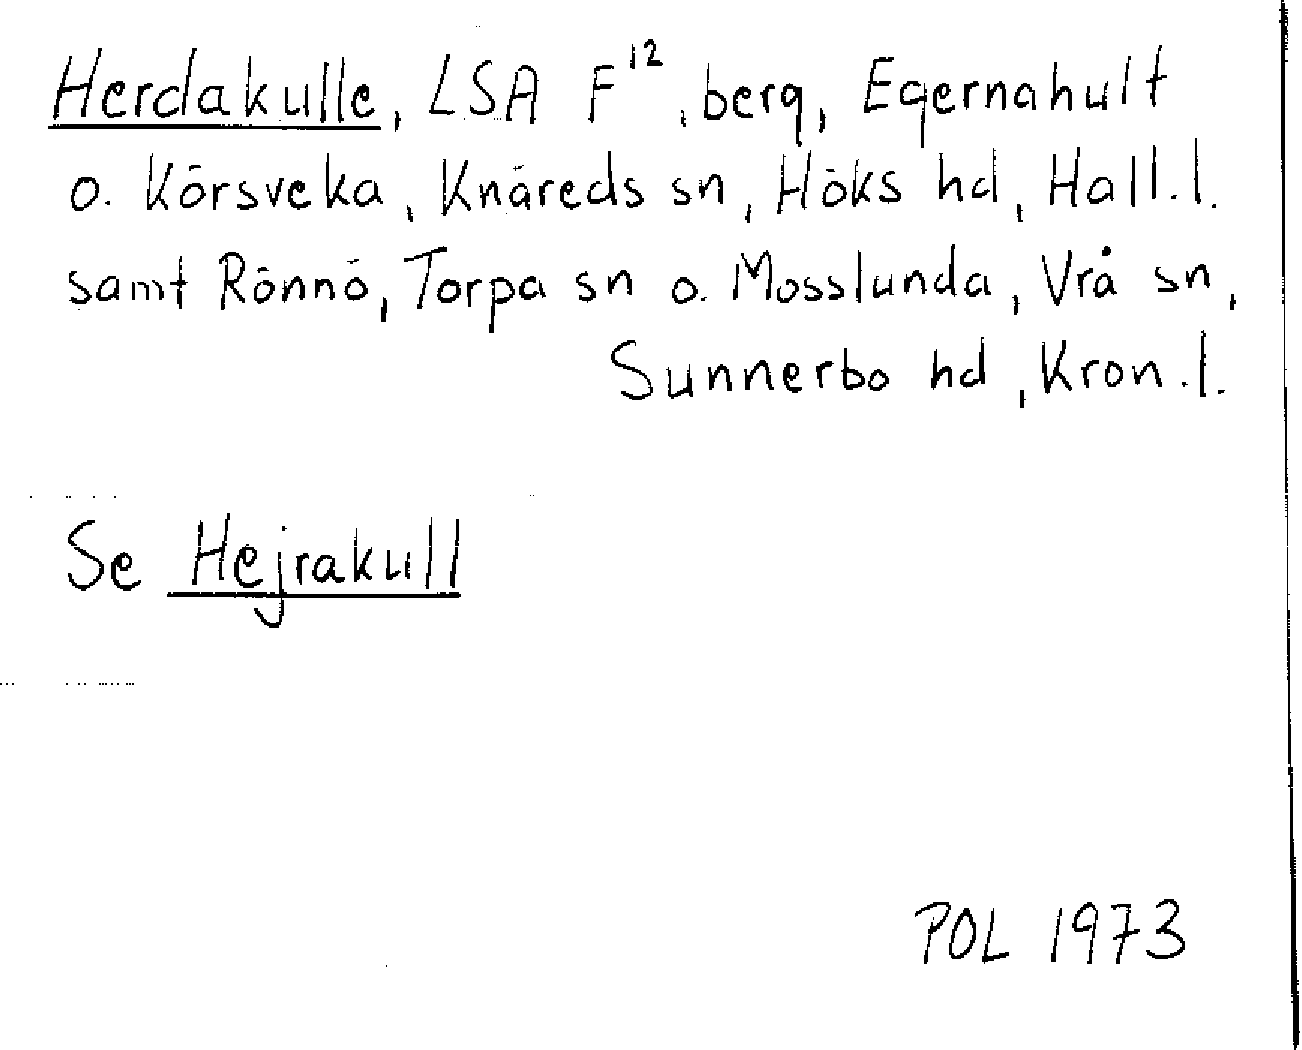 Herdakulle, LSA F¹², berg, Egernahult
o. Körsveka, Knäreds sn, Höks hd, Hall.l.
samt Rönnö, Torpa sn o. Mosslunda, Vrå sn,
Sunnerbo hd, Kron.l.
Se Hejrakull
POL 1973